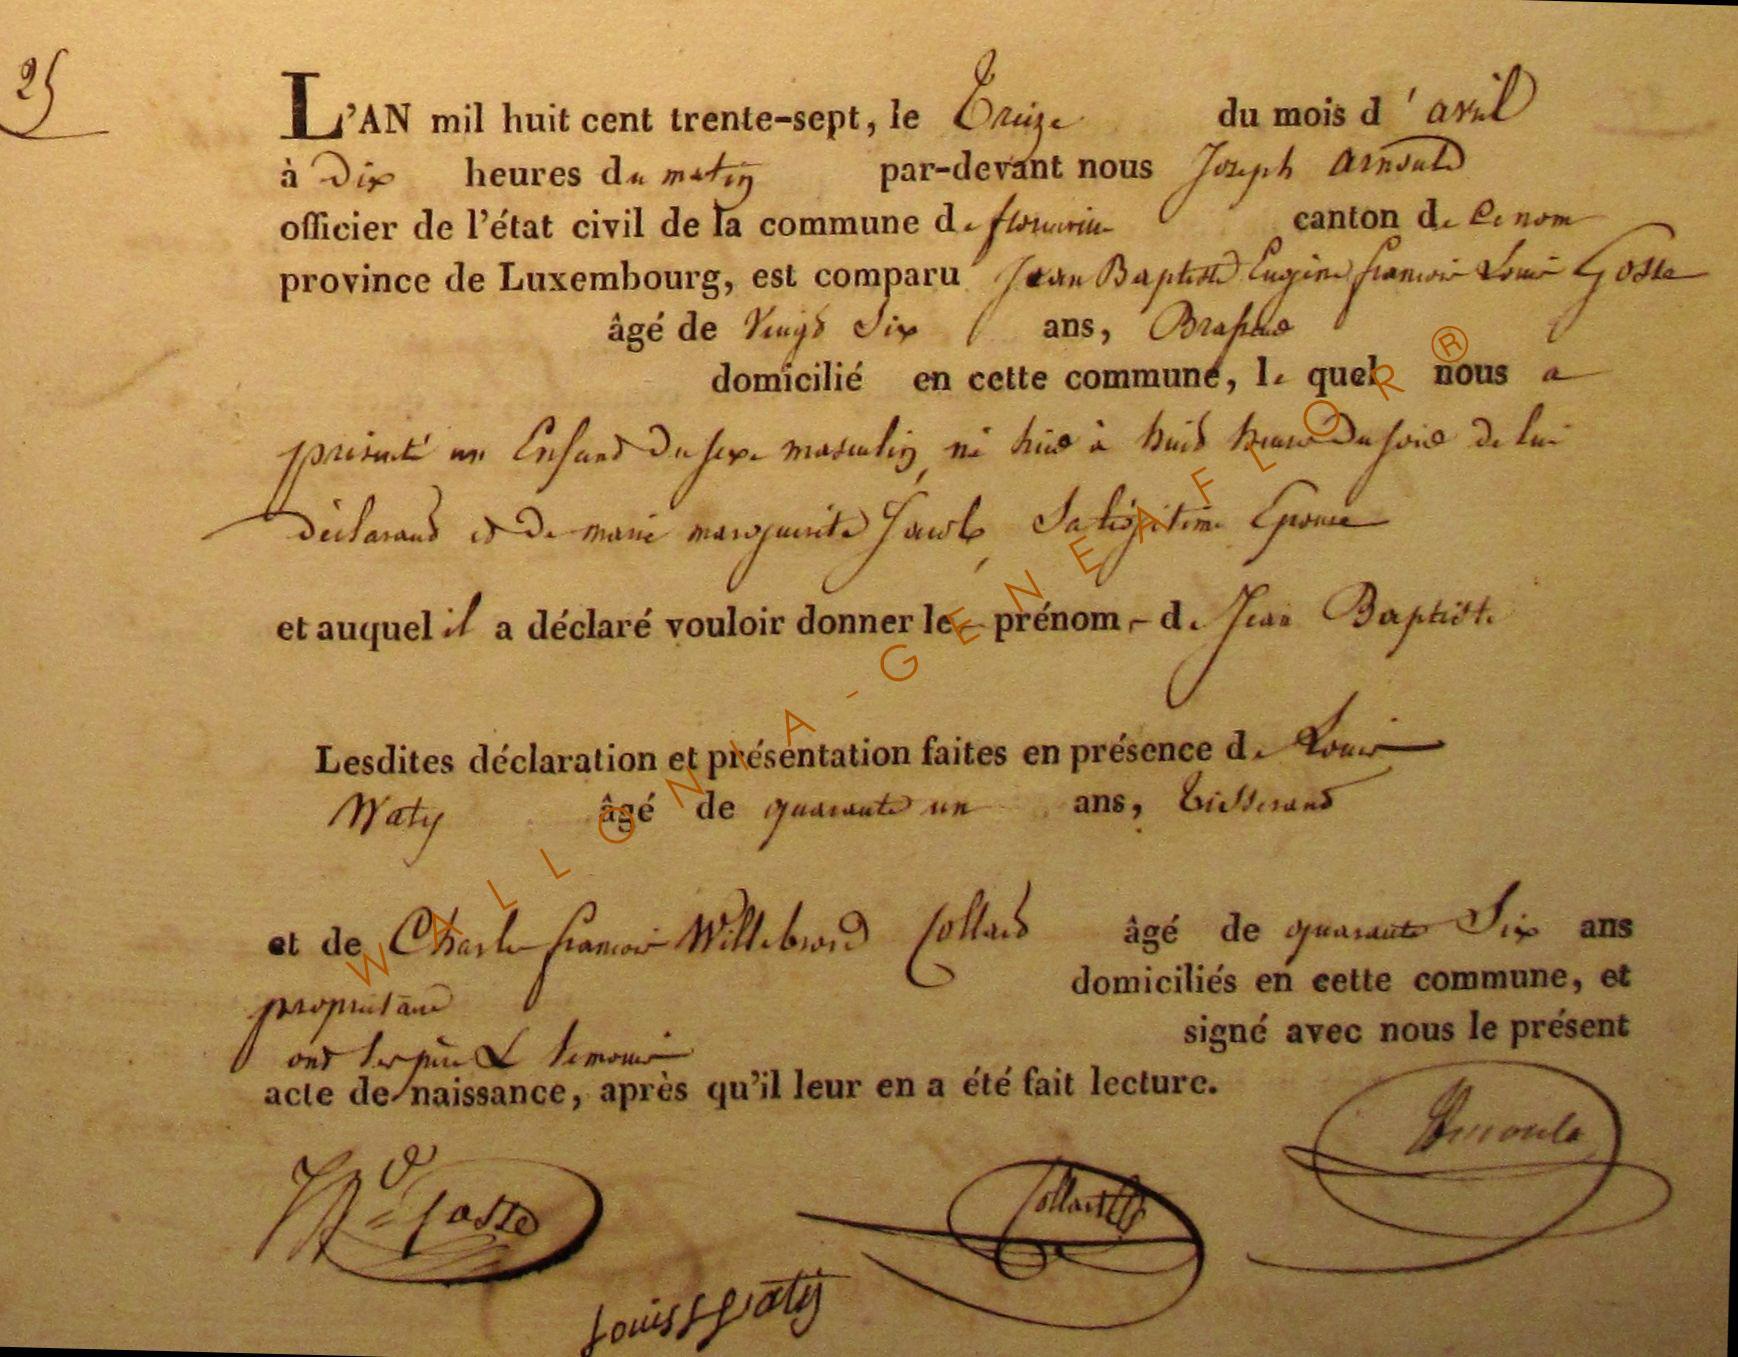 25
L'AN mil huit cent trente-sept, le Treize du mois d'avril
à Dix heures du matin par-devant nous Joseph Arnould
officier de l'état civil de la commune de florenville canton de ce nom
province de Luxembourg, est comparu Jean Baptiste Eugène françois Louis Gosse
âgé de Vingt Six ans, Brasseur
domicilié en cette commune, le quel nous a
présenté un Enfant du sexe masculin, né hier à huit heures du soir de lui
déclarant et de marie marguerite Jacob, Sa légitime Epouse
et auquel il a déclaré vouloir donner le prénom de Jean Baptiste
Lesdites déclaration et présentation faites en présence de Louis
Waty âgé de quarante un ans, Tisserand
et de Charles françois Willebrord Collard âgé de quarante Six ans
propriétaire domiciliés en cette commune, et
ont les père & temoins signé avec nous le présent
acte de naissance, après qu'il leur en a été fait lecture.
Arnould
Gosse
Collard
Louis Waty
WALLONIA-GENEAFLOR®